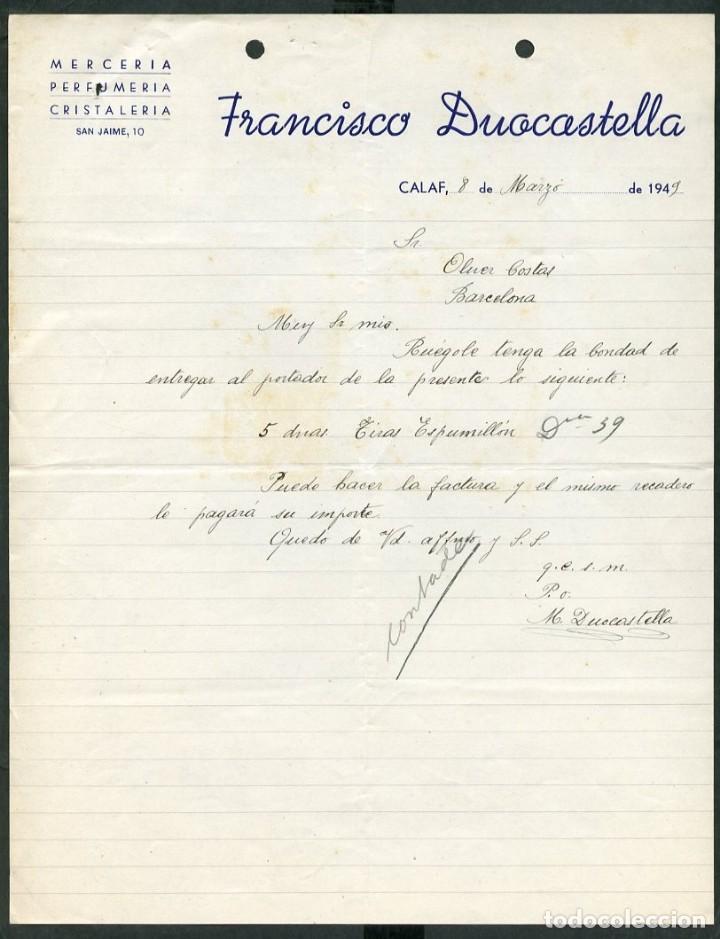 MERCERIA
PERFUMERIA
CRISTALERIA
SAN JAIME, 10
Francisco Duocastella
CALAF, 8 de Marzo de 1949
Sr.
Oliver Costas
Barcelona
Muy Sr mio.
Ruégole tenga la bondad de
entregar al portador de la presente lo siguiente:
5 dnas Tiras Espumillón Dna 39
Puede hacer la factura y el mismo recadero
le pagará su importe
Quedo de Vd. affmo y S.S.
q.e.s.m.
P.o.
M. Duocastella
contado
todocoleccion